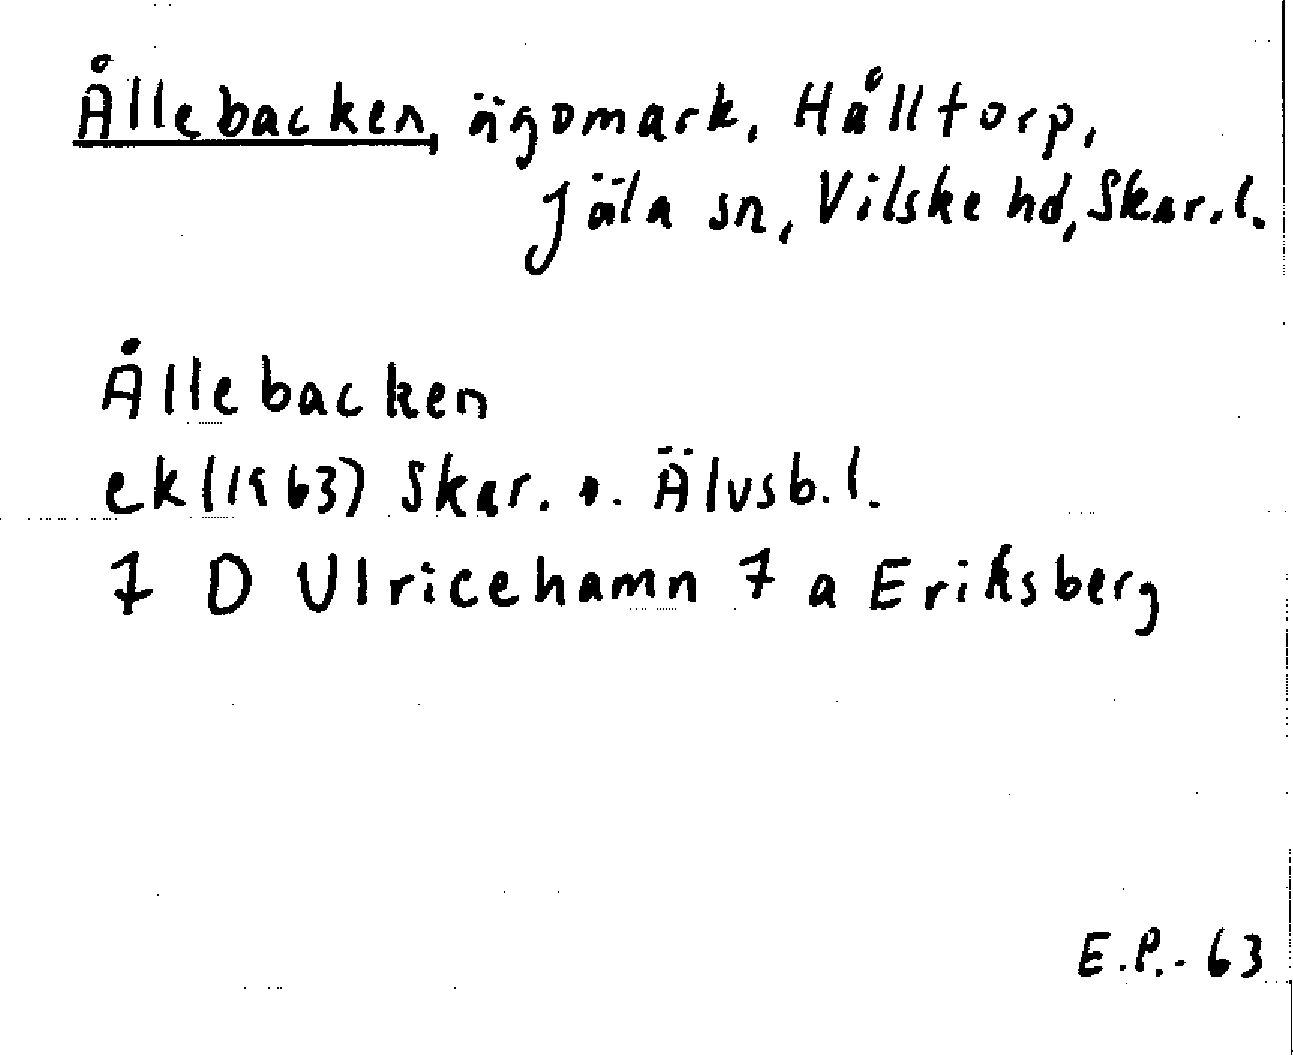 Ållebacken, ägomark, Hålltorp,
Jäla sn, Vilske hd, Skar.l.
Ållebacken
ek (1963) Skar. o. Älvsb.l.
7 D Ulricehamn 7 a Eriksberg
E.P.-63